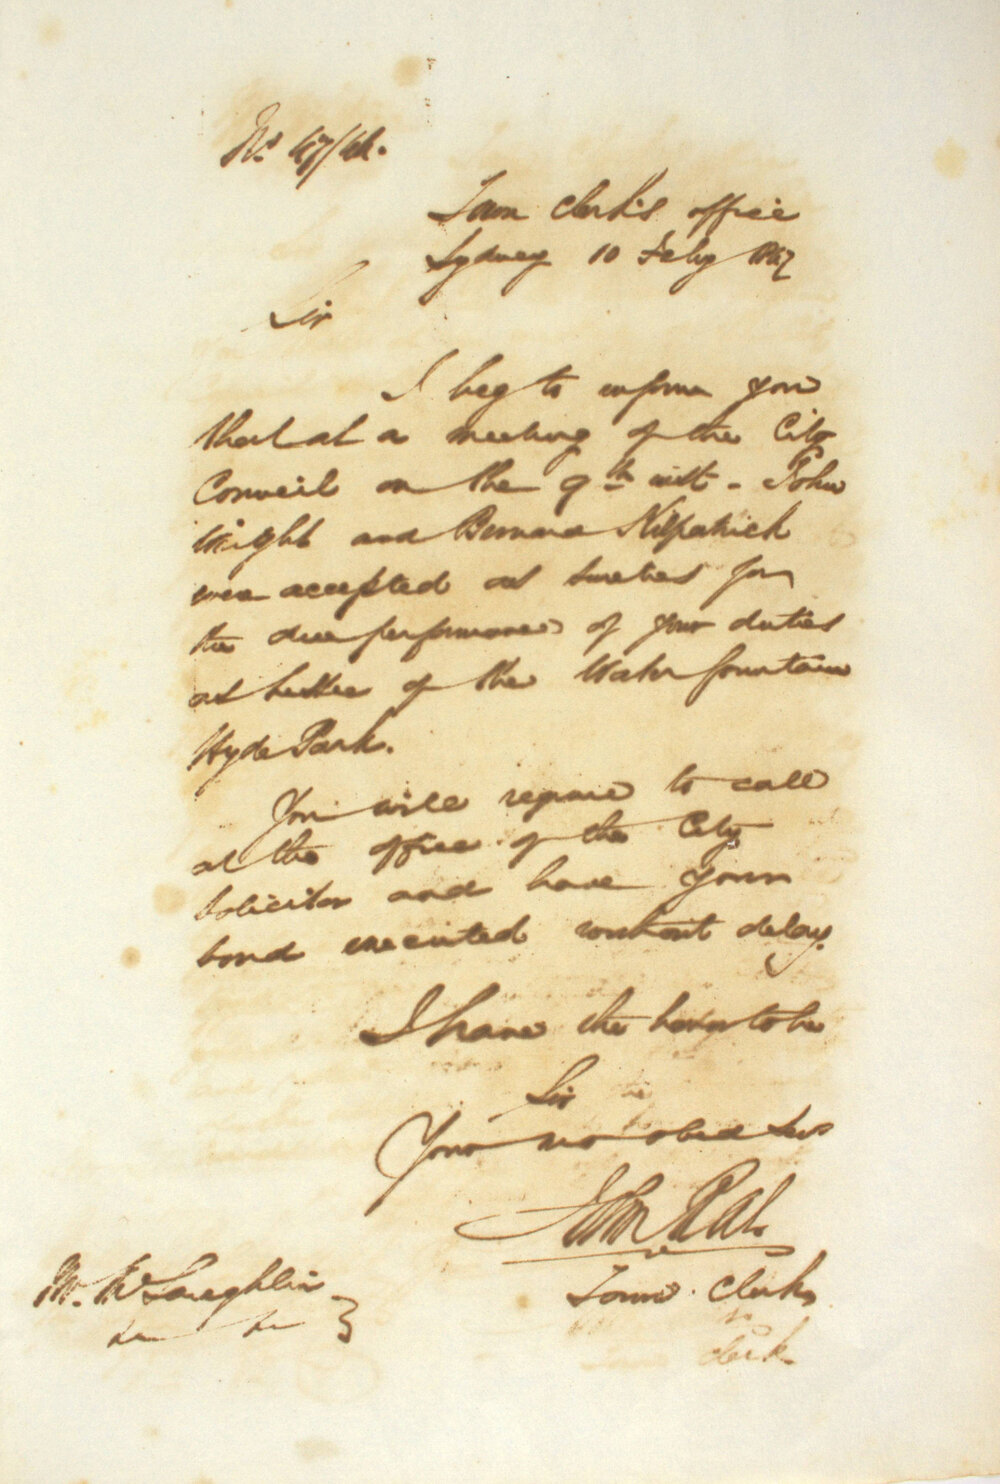 No 47/44.
Town Clerk's office
Sydney 10 Feby 1847
Sir
I beg to inform you
that at a meeting of the City
Council on the 9th inst - John
Wright and Bernard Kilpatrick
were accepted as sureties for
the due performance of your duties
as Lessee of the Water fountain
Hyde Park.
You will require to call
at the office of the City
Solicitor and have your
bond executed without delay.
I have the honor to be
Sir
Your mo obed Ser
John Rae
Town Clerk
Mr. McLaughlin